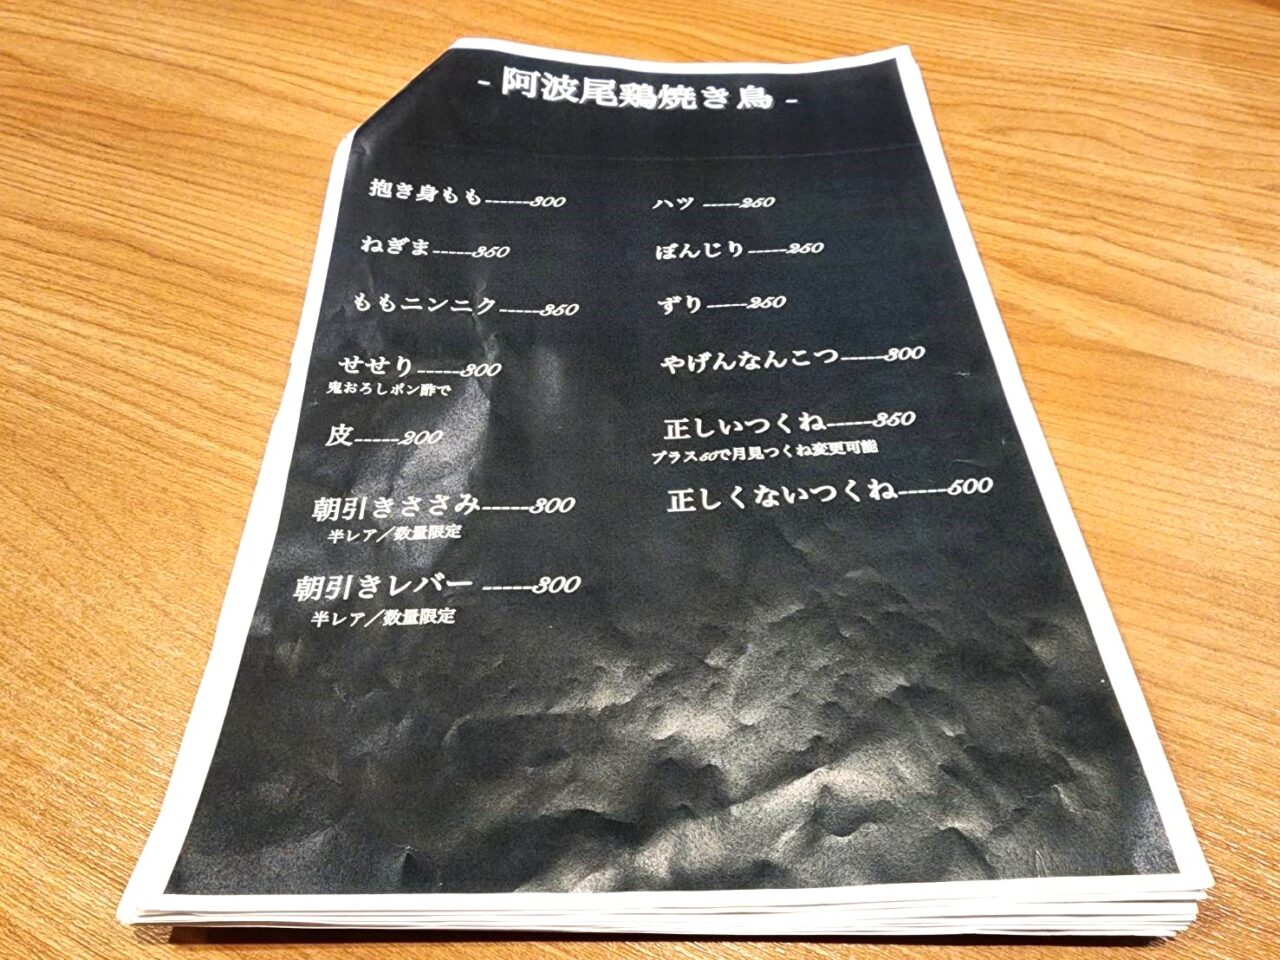 - 阿波尾鶏焼き鳥 -
抱き身もも------300
ねぎま-----350
ももニンニク-----350
せせり-----300
鬼おろしポン酢で
皮-----200
朝引きささみ-----300
半レア／数量限定
朝引きレバー -----300
半レア／数量限定
ハツ -----250
ぼんじり-----250
ずり-----250
やげんなんこつ-----300
正しいつくね-----350
プラス50で月見つくね変更可能
正しくないつくね-----500